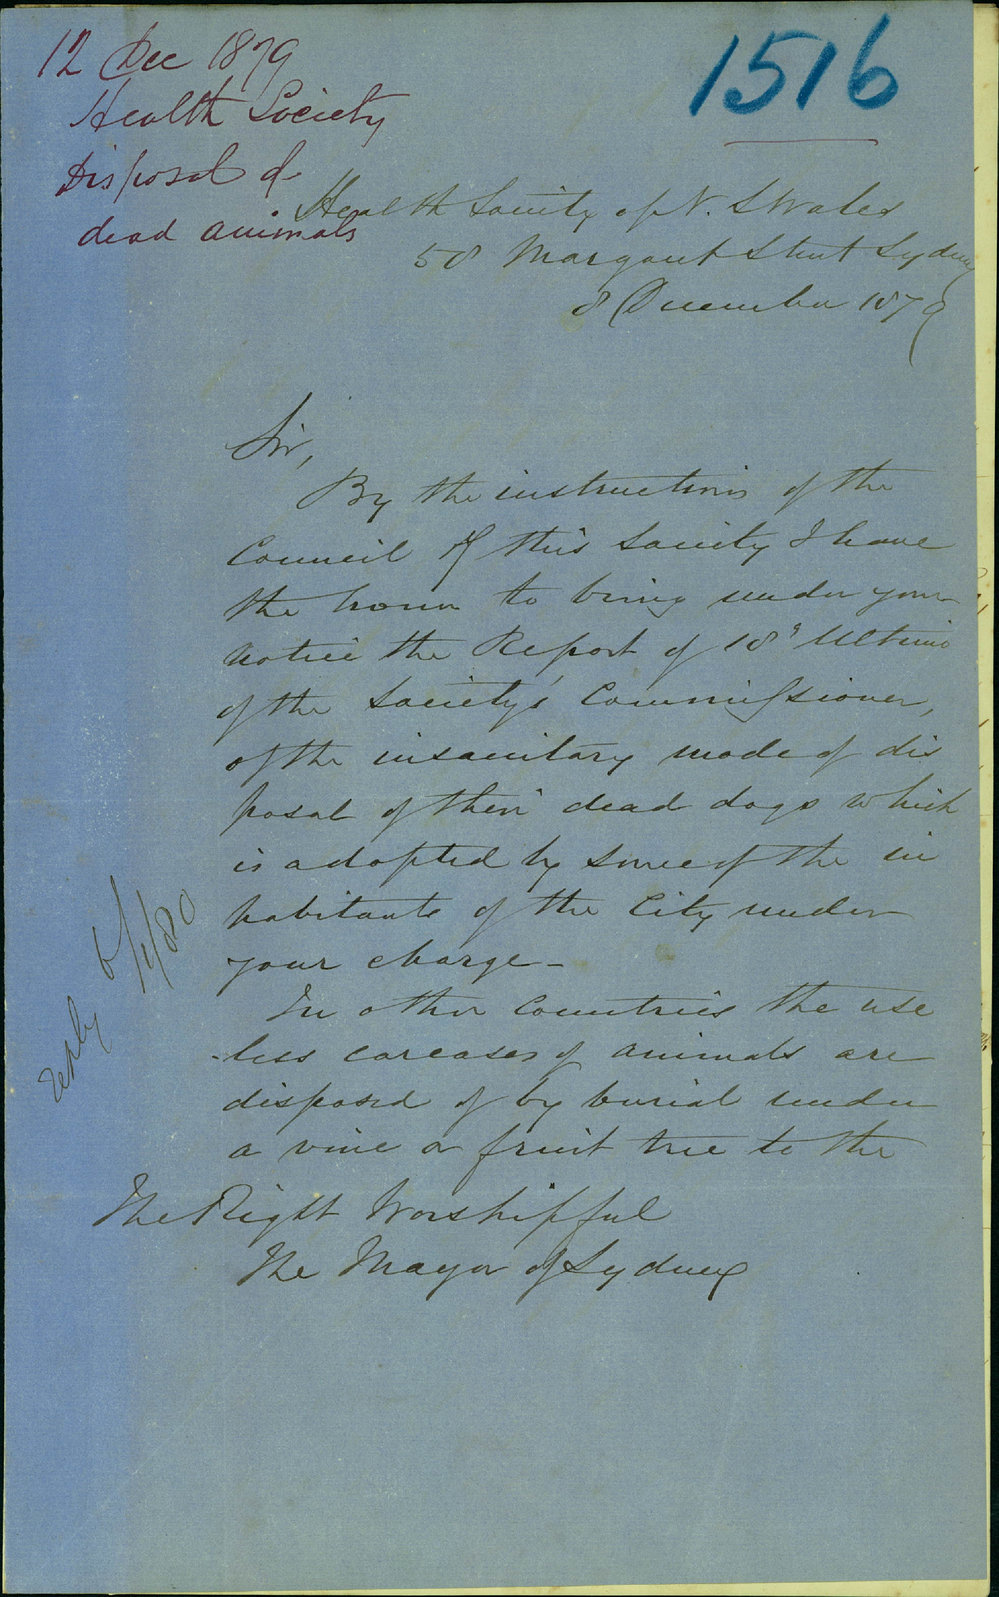 12 Dec 1879
Health Society
Disposal of
dead animals
1516
Health Society of N. S Wales
58 Margaret Street Sydney
8 December 1879
Sir,
By the instructions of the
Council of this Society I have
the honor to bring under your
notice the Report of 18" Ultimo
of the Society's Commissioner,
of the insanitary mode of dis
posal of their dead dogs which
is adopted by some of the in
habitants of the City under
your charge -
In other Countries the use
-less carcases of animals are
disposed of by burial under
a vine or fruit tree to the
The Right Worshipful
The Mayor of Sydney
reply